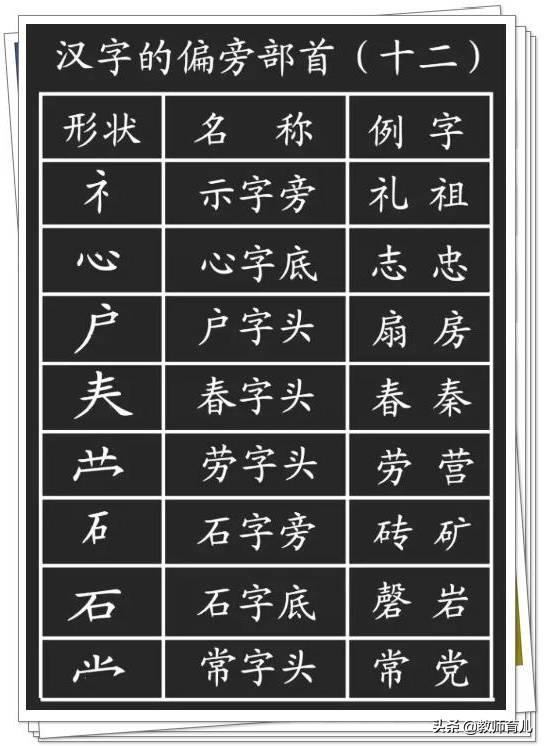 汉字的偏旁部首（十二）
形状 名 称 例 字
礻 示字旁 礼 祖
心 心字底 志 忠
户 户字头 扇 房
𡗗 春字头 春 秦
𫇦 劳字头 劳 营
石 石字旁 砖 矿
石 石字底 磬 岩
𫩠 常字头 常 党
头条 @教师育儿